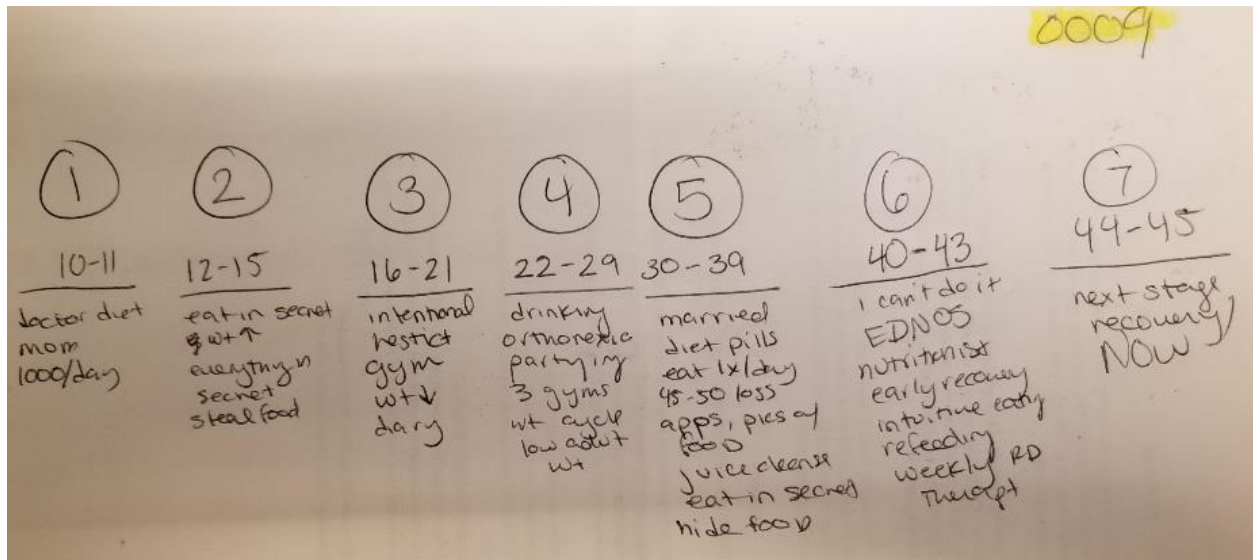 0009
1
10-11
doctor diet
mom
1000/day
2
12-15
eat in secret
& wt↑
everything in
secret
steal food
3
16-21
intentional
restict
gym
wt↓
diary
4
22-29
drinking
orthorexic
partying
3 gyms
wt cycle
low adult
wt
5
30-39
married
diet pills
eat 1x/day
45-50 loss
apps, pics of
food
juice cleanse
eat in secret
hide food
6
40-43
i can't do it
EDNOS
nutritionist
early recovery
intuitive eating
refeeding
weekly RD
Therapt
7
44-45
next stage
recovery
NOW